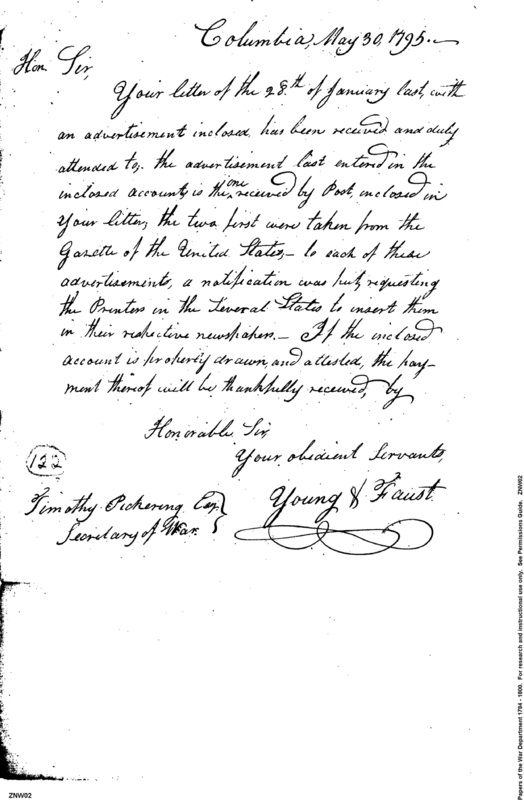 Columbia, May 30, 1795.—
Hon. Sir,
Your letter of the 28.th of January last, with
an advertisement inclosed has been received and duly
attended to, the advertisement last entered in the
inclosed account, is the one received by Post, inclosed in
Your letter, the two first were taken from the
Gazette of the United States,— to each of these
advertisements, a notification was put, requesting
the Printers in the Several States to insert them
in their respective newspapers.— If the inclosed
account is properly drawn, and attested, the pay-
ment thereof will be thankfully received, by
Honorable Sir,
Your obedient Servants,
Young & Faust.
122
Timothy Pickering Esq.
Secretary of War.
Papers of the War Department 1784 - 1800. For research and instructional use only. See Permissions Guide. ZNW02
ZNW02